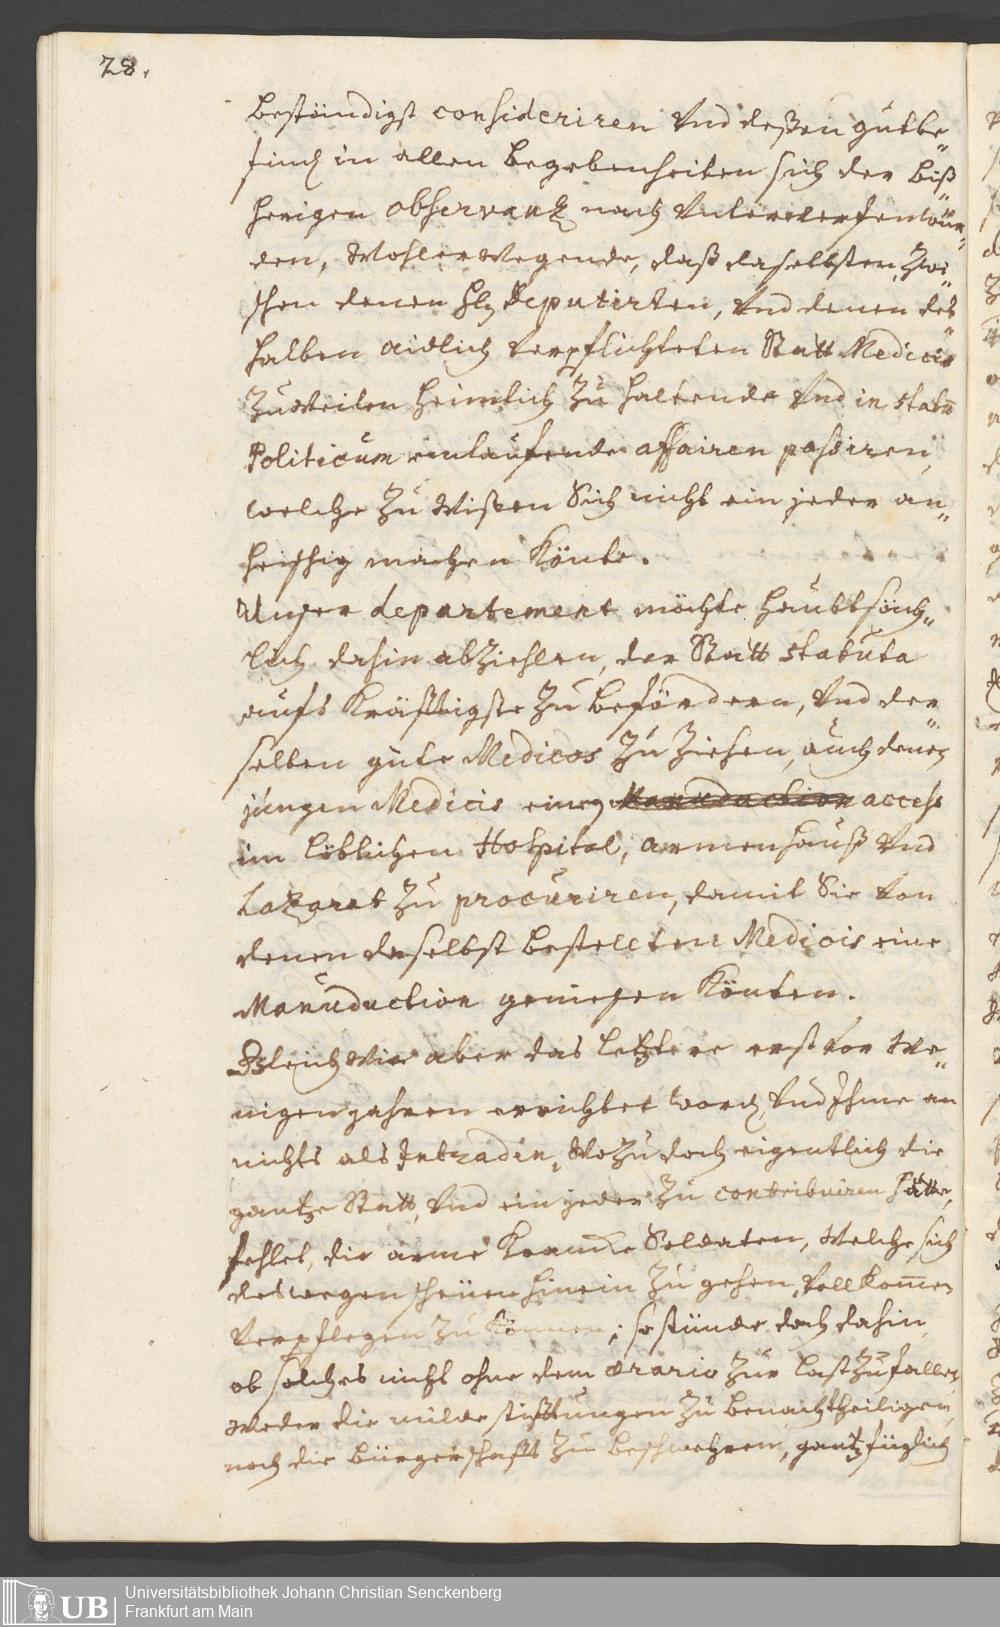 28.
beständigst consideriren Und deßen gutbe„
find in allen begebenheiten sich der biß„
herigen observantz nach Unterwerfen wür„
den, Wohlerwegende, daß daselbsten, Zwi„
schen denen Hh Deputirten, Und denen deß„
halben aidlich Verpflichteten Statt Medicis
Zuweilen heimlich Zu haltende Und in statū
Politicum einlaufende affairen passiren,
welche Zu Wißen Sich nicht ein jeder an„
heischig machen Könte.
Unser departement möchte haubtsäch„
lich dahin abZiehlen, der Statt statuta
aufs Kräfftigste Zu befördern, Und der„
selben gute Medicos Zu Ziehen, auch denen
jungen Medicis einen Manuduction access
im löblichen Hospital, armenhauß Und
Lazaret Zu procuriren, damit Sie Von
denen daselbst bestellten Medicis eine
Manuduction genießen Könten.
Gleich Wie aber das letztere erst Vor We„
nigen jahren errichtet word, Und Ihme an
nichts als Intraden, WoZu doch eigentlich die
gantze Statt, Und ein jeder Zu contribuiren hätte,
fehlet, die arme Krancke Soldaten, Welche sich
deswegen scheuen hinein Zu gehen, Vollkom̄en
Verpflegen Zu Können; so stünde doch dahin,
ob solches nicht ohne dem ærario Zur last Zu fallen,
Weder die milde stifftungen Zu benachtheiligen,
noch die bürgerschafft Zu beschwehren, gantz füglich
UB
Universitätsbibliothek Johann Christian Senckenberg
Frankfurt am Main